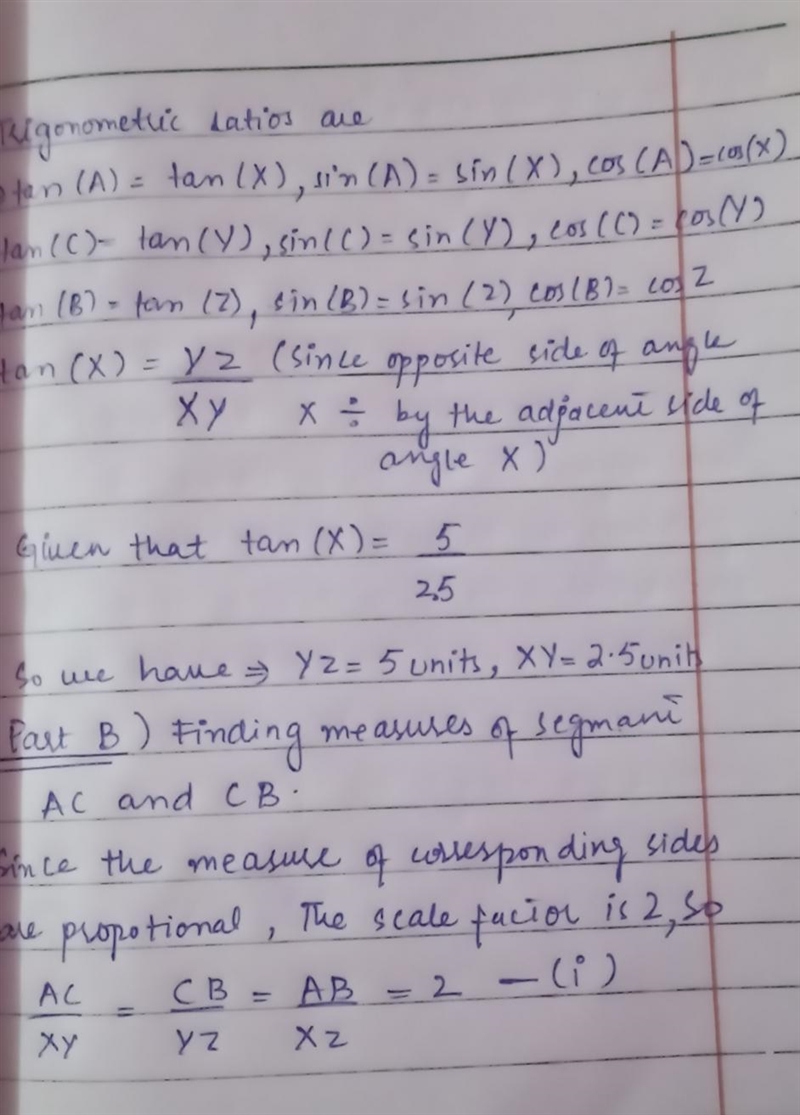 Trigonometric ratios are
tan (A) = tan (X), sin (A) = sin (X), cos (A) = cos(X)
tan (C) = tan (Y), sin (C) = sin (Y), cos (C) = cos(Y)
tan (B) = tan (Z), sin (B) = sin (Z), cos (B) = cos Z
tan (X) = YZ (since opposite side of angle
XY X ÷ by the adjacent side of
angle X)
Given that tan (X) = 5
2.5
So we have ⇒ YZ = 5 units, XY = 2.5 unit
Part B) Finding measures of segmant
AC and CB.
Since the measure of corresponding sides
are propotional, The scale factor is 2, so
AC = CB = AB = 2 — (i)
XY YZ XZ